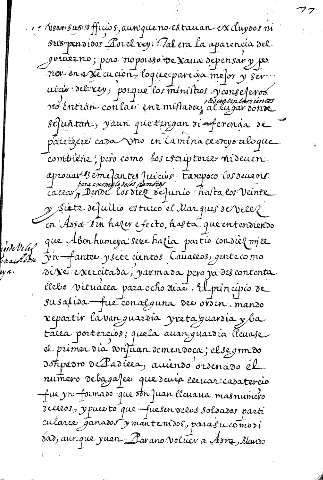 77
usar sus officios, aunque no estavan excluydos ni
suspendidos Por el rey: Tal era la aparencia del
govierno; pero no por eso dexava de pensar y po
ner en execucion, lo que parecia mejor y ser
vicio del rey; porque los ministros y consejeros
no entran con las enemistades al lugar donde
se juntan, y aunque tengan diferencia de
pareceres cada uno encamina el suyo a lo que
combiene; pero como los escriptores ni deven
aprovar semejantes Juicios tampoco los deven
callar
para exemplo de los
Desde los diez de Junio hasta los veinte
y siete de Jullio estuvo el Marques de Velez
en Adra sin hazer efecto, hasta que entendiendo
que Aben humeya se rehazia partio con diez mil
ynfantes y sete cientos Cavallos, gente como
dixe exercitada, y armada pero ya descontenta
llevo vituallas para ocho dias. El principio de
su salida fue con alguna desorden. mando
repartir la vanguardia y reta guardia y ba
talla por tercios; que la avanguardia llevase
el primer dia don Juan de mendoça; el segundo
don pedro de Padilla, aviendo ordenado el
numero de bagajes que devia llevar cada tercio
fue ynformado que don Juan llevava mas numero
de ellos, y puesto que fuesen de los soldados parti
culares ganados y mantenidos, para su comodi
dad, aunque yvan Para no volver a Adra, Mando